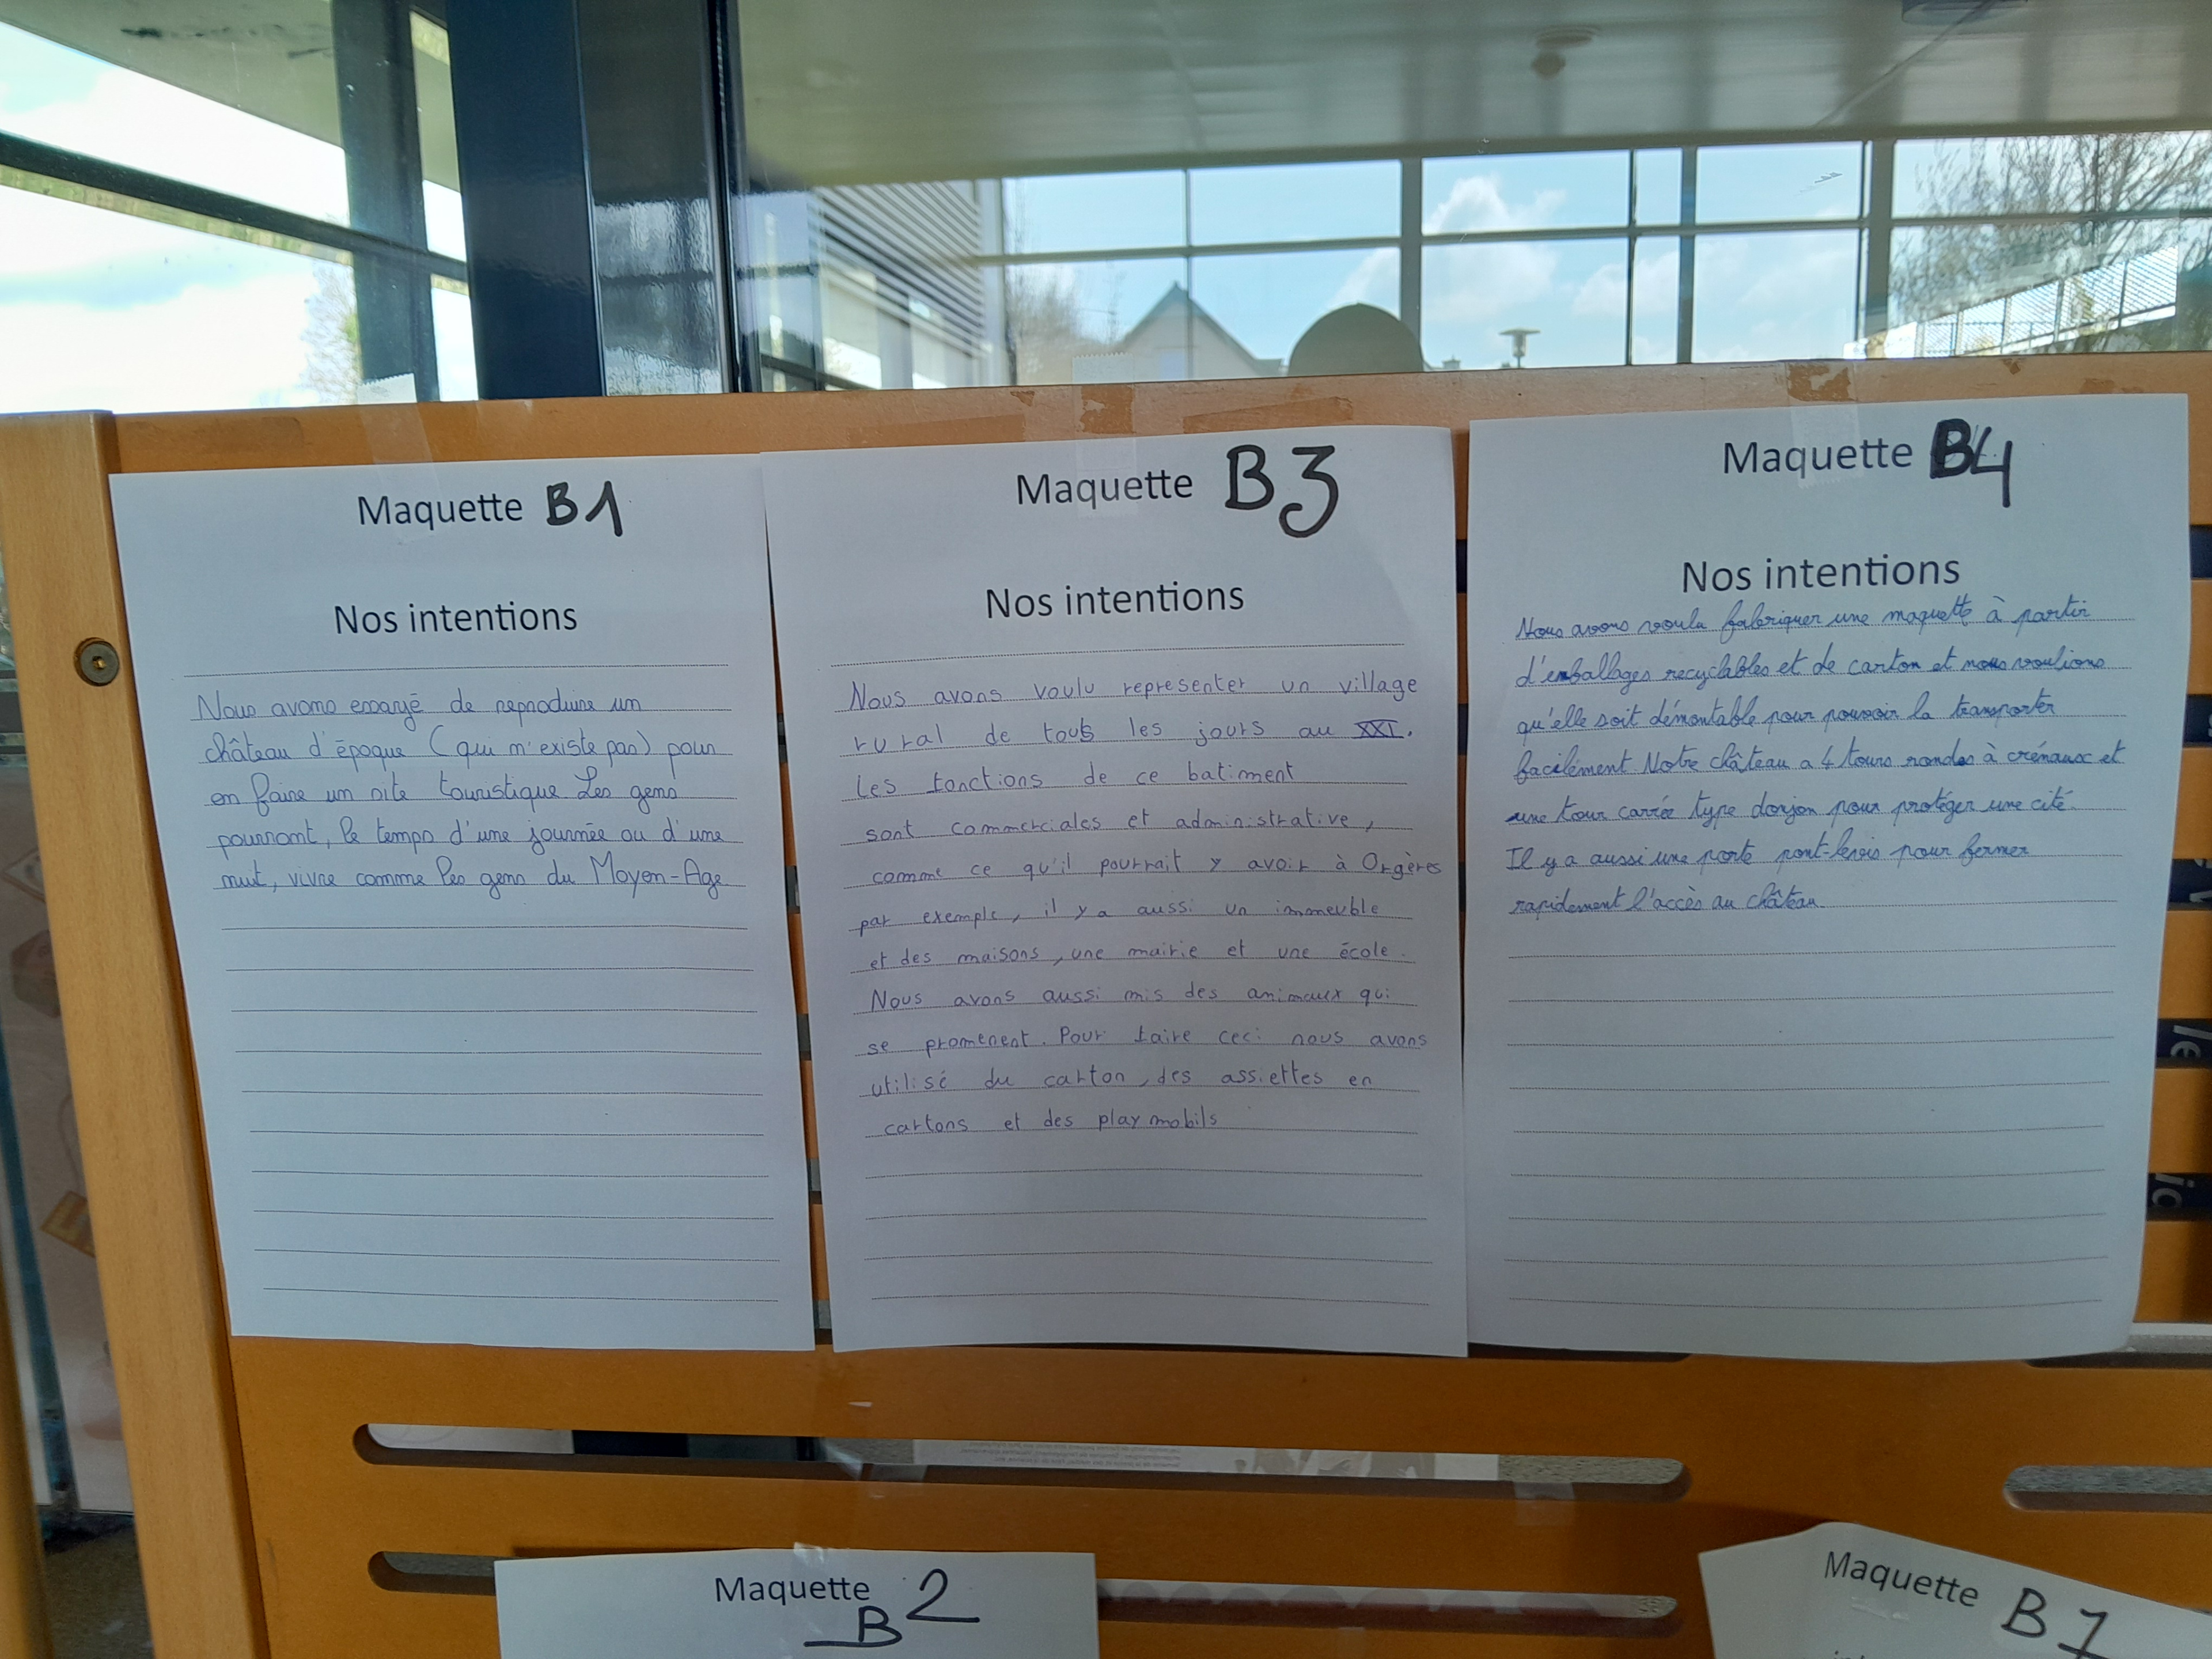 Maquette B1
Nos intentions
Nous avons essayé de reproduire un
château d'époque (qui n'existe pas) pour
en faire un site touristique Les gens
pourront, le temps d'une journée ou d'une
nuit, vivre comme les gens du Moyen-Age
Maquette B3
Nos intentions
Nous avons voulu representer un village
rural de tous les jours au XXI.
Les fonctions de ce batiment
sont commerciales et administrative,
comme ce qu'il pourrait y avoir à Orgères
par exemple, il y a aussi un immeuble
et des maisons, une mairie et une école.
Nous avons aussi mis des animaux qui
se promenent. Pour faire ceci nous avons
utilisé du carton, des assiettes en
cartons et des playmobils
Maquette B4
Nos intentions
Nous avons voulu fabriquer une maquette à partir
d'emballages recyclables et de carton et nous voulions
qu'elle soit démontable pour pouvoir la transporter
facilement Notre château a 4 tours rondes à crénaux et
une tour carrée type donjon pour protéger une cité.
Il y a aussi une porte pont-levis pour fermer
rapidement l'accès au château.
le
ic
Maquette B2
Maquette B7